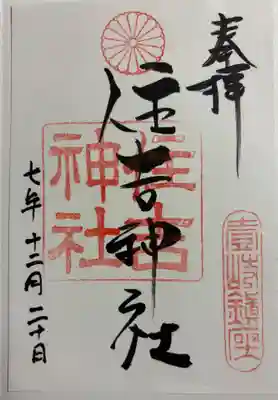 奉拝
住吉神社
住吉神社
壹岐鎮座
七年十二月二十日